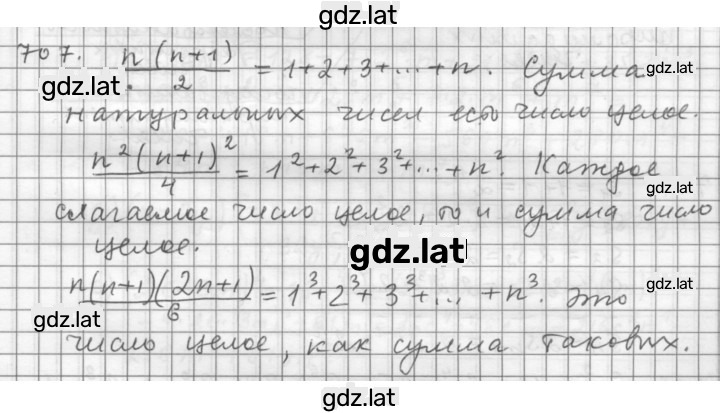 gdz.lat
707. n(n+1)/2 = 1+2+3+...+n. Сумма gdz.lat
gdz.lat
натуральных чисел есть число целое.
n²(n+1)²/4 = 1²+2²+3²+...+n². Каждое
gdz.lat
слагаемое число целое, то и сумма число
целое.
gdz.lat
n(n+1)(2n+1)/6 = 1³+2³+3³+...+n³. Это
gdz.lat
gdz.lat
число целое, как сумма таковых.
gdz.lat